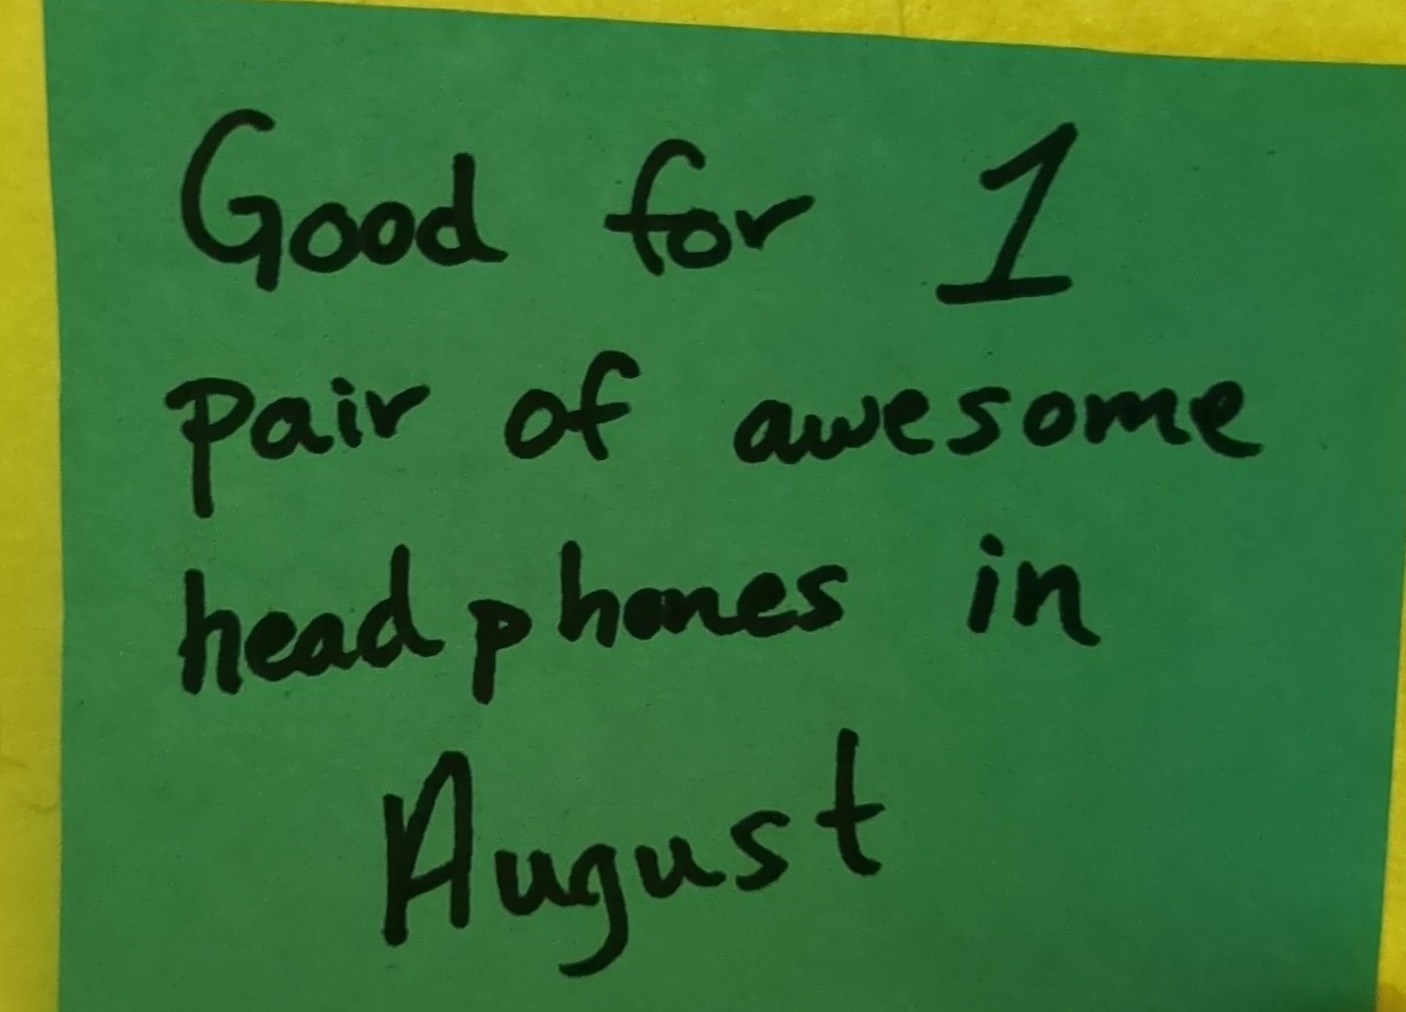 Good for 1
pair of awesome
headphones in
August